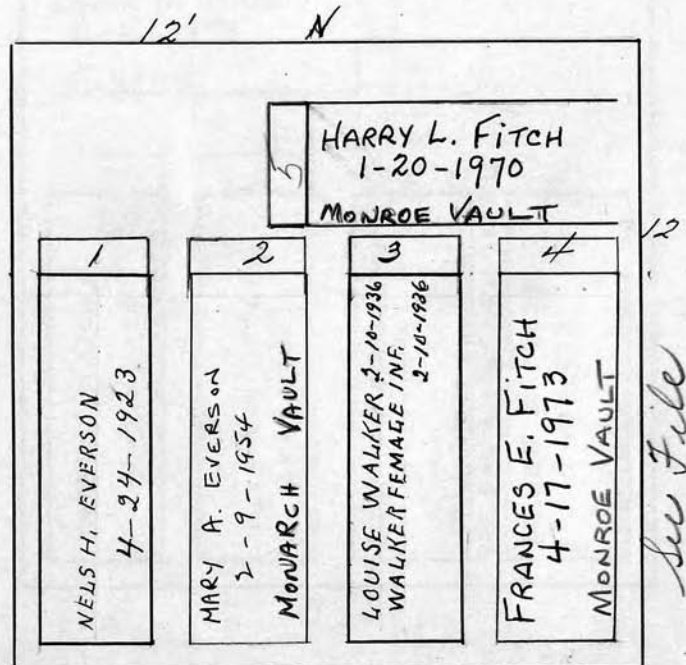 12' N
5
HARRY L. FITCH
1-20-1970
MONROE VAULT
12
1
2
3
4
NELS H. EVERSON
4-24-1923
MARY A. EVERSON
2-9-1954
MONARCH VAULT
LOUISE WALKER 2-10-1936
WALKER FEMAGE INF.
2-10-1936
FRANCES E. FITCH
4-17-1973
MONROE VAULT
See File